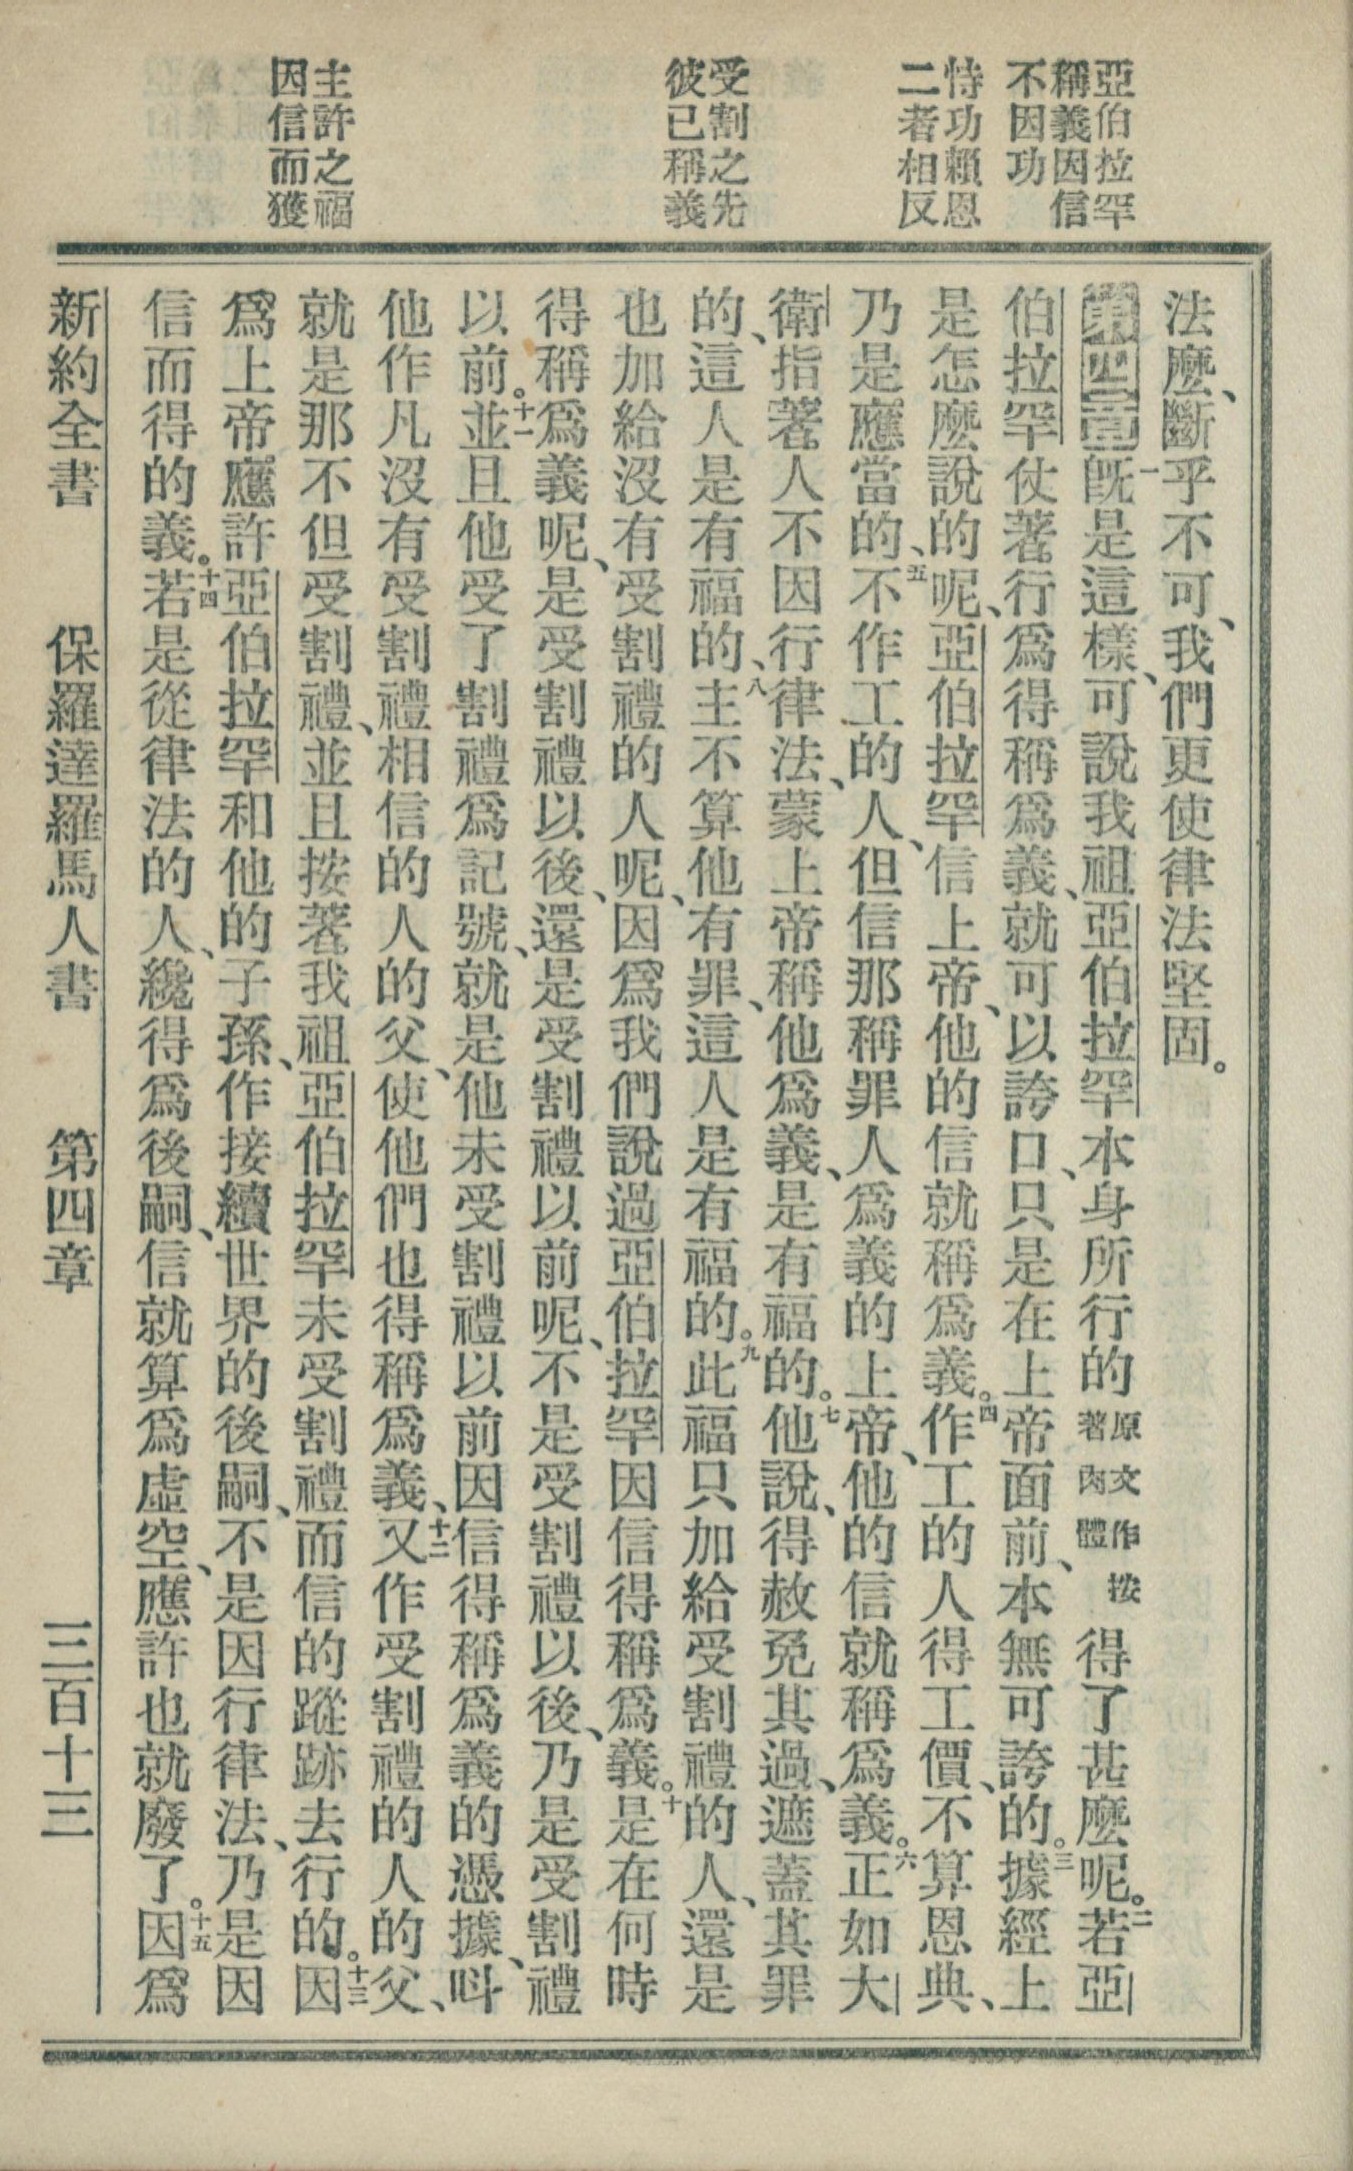 亞伯拉罕
稱義因信
不因功
恃功賴恩
二者相反
受割之先
彼已稱義
主許之福
因信而獲
法麽、斷乎不可、我們更使律法堅固。
第四章 一旣是這樣、可說我祖亞伯拉罕本身所行的原文作按著肉體得了甚麽呢。二若亞
伯拉罕仗著行爲得稱爲義、就可以誇口、只是在上帝面前、本無可誇的。三據經上
是怎麽說的呢、亞伯拉罕信上帝、他的信就稱爲義。四作工的人得工價、不算恩典、
乃是應當的、五不作工的人、但信那稱罪人爲義的上帝、他的信就稱爲義。六正如大
衛指著人不因行律法、蒙上帝稱他爲義、是有福的。七他說、得赦免其過、遮蓋其罪
的、這人是有福的、八主不算他有罪、這人是有福的。九此福只加給受割禮的人、還是
也加給沒有受割禮的人呢、因爲我們說過亞伯拉罕因信得稱爲義。十是在何時
得稱爲義呢、是受割禮以後、還是受割禮以前呢、不是受割禮以後、乃是受割禮
以前。十一並且他受了割禮爲記號、就是他未受割禮以前因信得稱爲義的憑據、呌
他作凡沒有受割禮相信的人的父、使他們也得稱爲義、十二又作受割禮的人的父、
就是那不但受割禮、並且按著我祖亞伯拉罕未受割禮而信的蹤跡去行的。十三因
爲上帝應許亞伯拉罕和他的子孫、作接續世界的後嗣、不是因行律法、乃是因
信而得的義。十四若是從律法的人、纔得爲後嗣、信就算爲虛空、應許也就廢了。十五因爲
新約全書 保羅達羅馬人書 第四章 三百十三